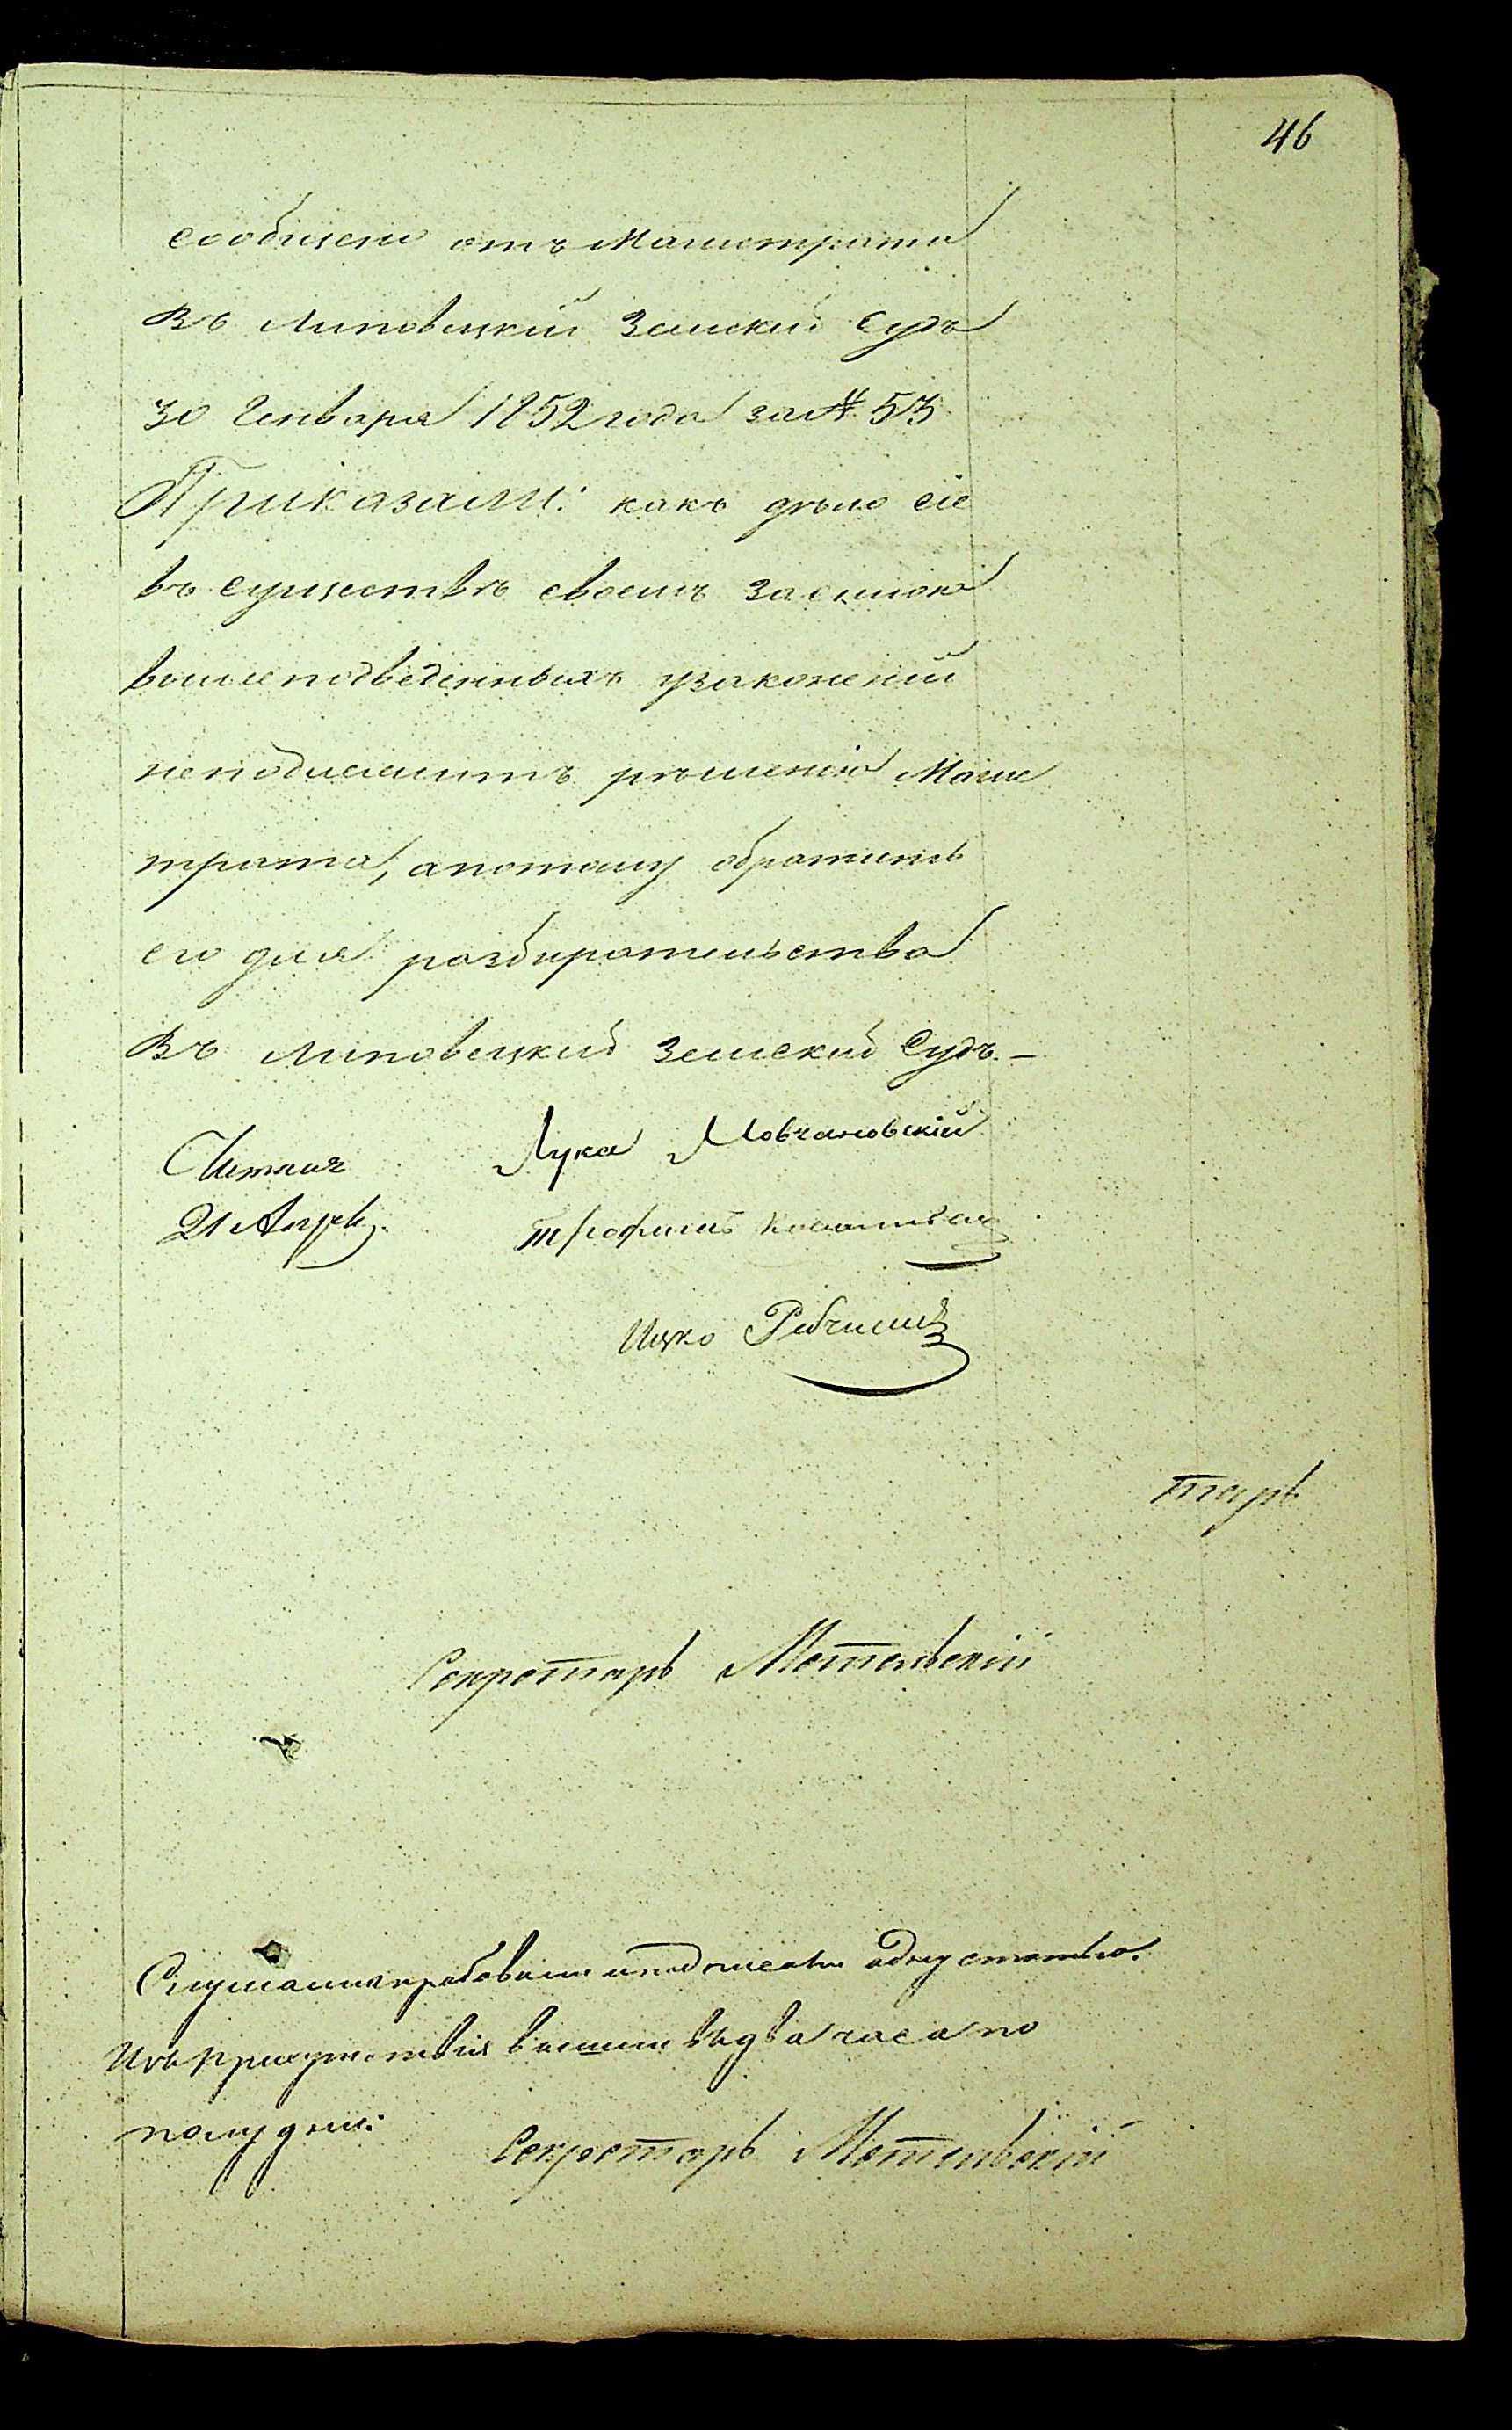 46
сообщено отъ Магистрата
Въ Липовецкій Земскій Судъ
30 Генваря 1852 года за № 53
Приказали: какъ дѣло сіе
въ существѣ своемъ
вышеподведенныхъ узаконеній
неподлежитъ рѣшенію Магис
трата, апотому обратить
его для разбирательства
Въ Липовецкій Земскій Судъ. —
Лука Мовчановскій
21 Апрѣ
Трофимъ
Ицко
тарь
Секретарь Метельскій
одну статью.
Изъ Присутствія вышли въ два часа по
полудни:
Секретарь Метельскій